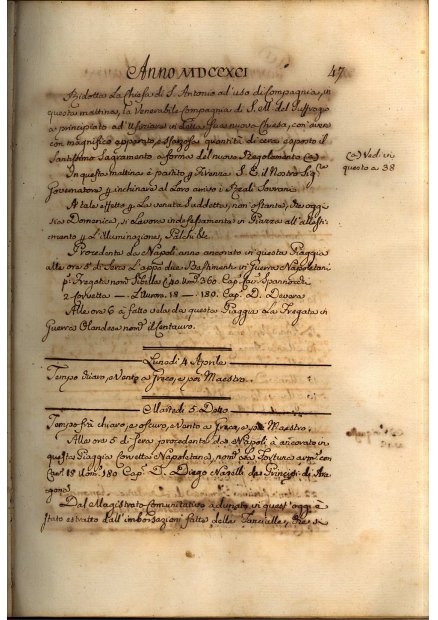 Anno MDCCXCI
47
Ridotta la Chiesa di S. Antonio ad uso di Compagnia, in
questa mattina, la Venerabile Compagnia di S. M. del Suffragio
a principiato ad Ufiziare in detta sua nuova Chiesa, con aver
con magnifico apparato, e sfarzosa quantità di cera esposto il
Santissimo Sagramento a forma del nuovo Regolamento (a)
(a) Vedi in
questo a 38
In questa mattina è partito p. Firenze S. E. il Nostro Sig.re
Governatore p. inchinare al Loro arrivo i Reali Sovrani
A tale effetto p. la venuta suddetta, non ostante, che oggi
sia Domenica, si lavora indefessamente in Piazza all'allesti-
mento p. l'Illuminazione, Palchi &c.
Procedente da Napoli anno ancorato in questa Piaggia
alle ore 5 di Sera l'appresso due Bastimenti in Guerra Napoletani
p.a Fregata nom. Sibilla C. 40. Uom. 360 Cap. Spannocchi
2. Corvetta — L'Aurora 18 — 180. Cap. D.
Alle ore 6 à fatto vela da questa Piaggia la Fregata in
Guerra Olandese nom. il Centauro.
Lunedì 4 Aprile
Tempo chiaro, e Vento a Greco, e poi Maestro
Martedì 5. Detto
Tempo frà chiaro, e oscuro, vento a Greco, e poi Maestro.
Alle ore 5 di Sera procedente da Napoli à ancorato in
questa Piaggia Corvetta Napoletana, nom. la Fortuna arm. con
Can. 18 Uom. 180 Cap. D. Diego Naselli de Principi di Ara-
gona
Dal Magistrato Comunitativo adunato in quest'oggi è
stato estratto dall'imborsazioni fatte delle Fanciulle, che si